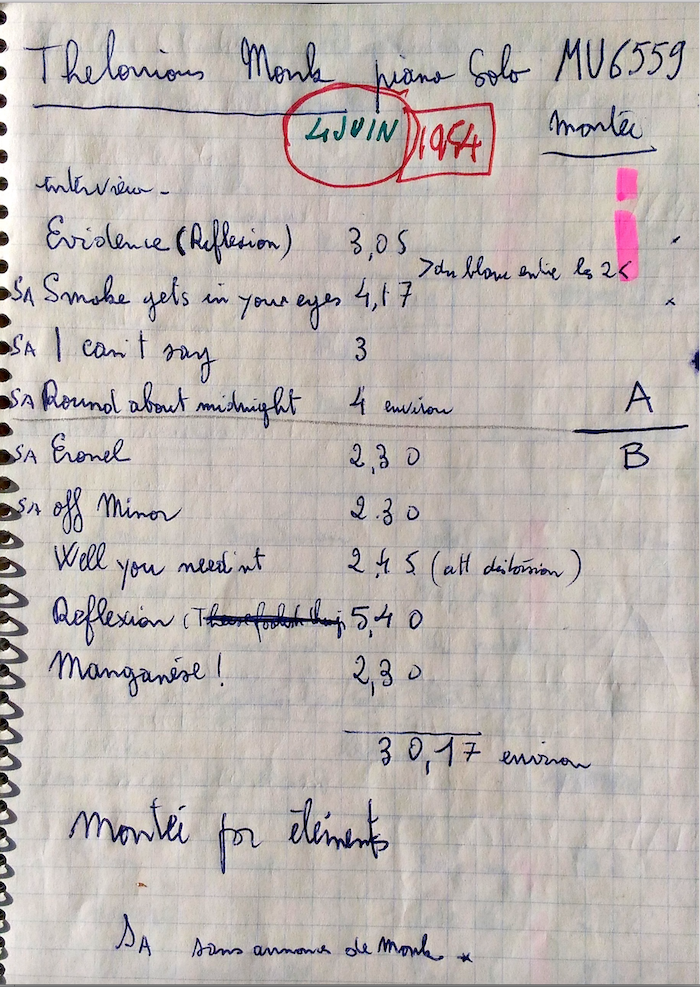 Thelonious Monk piano Solo MU6559
4 JUIN 1954 montée
interview -
Evidence (Reflexion) 3,05
> du blanc entre les 2 <
SA Smoke gets in your eyes 4,17
SA I can't say 3
SA Round about midnight 4 environ A
SA Eronel 2,30 B
SA off Minor 2.30
Well you need'nt 2,45 (att distorsion)
Reflexion (These foolish things 5,40
Manganèse! 2,30
30,17 environ
montée for éléments
SA sans annonce de Monk *